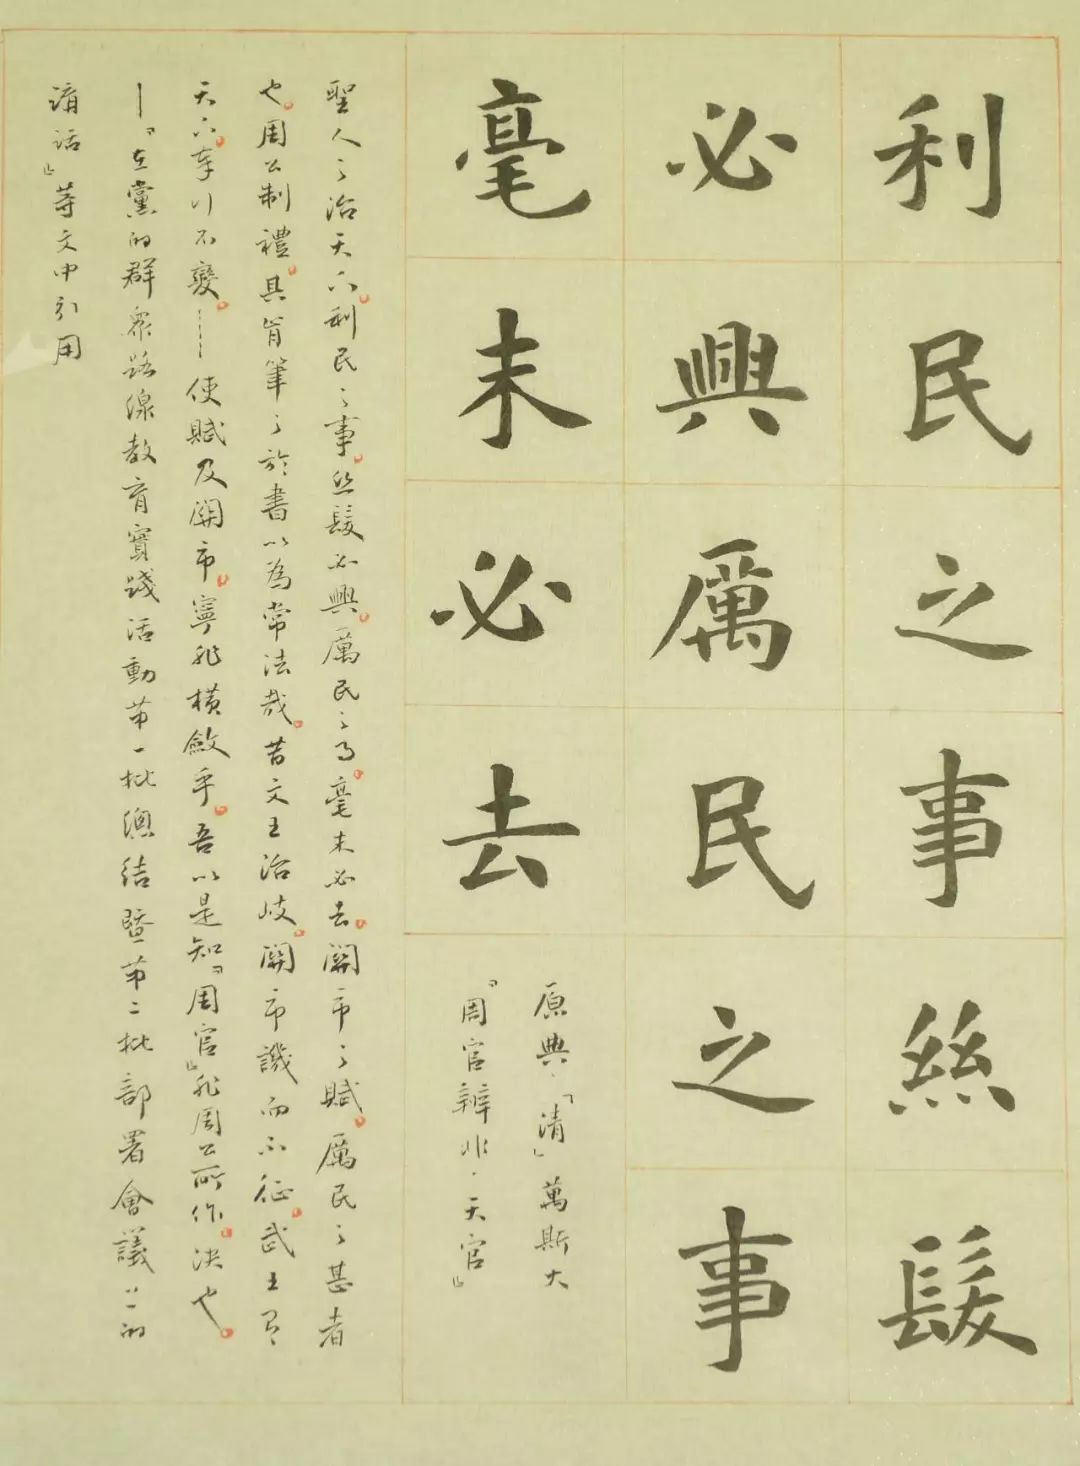 利民之事絲髮
必興厲民之事
毫末必去
原典·「清」萬斯大
『周官辨非·天官』
聖人之治天下。利民之事。丝髮必興。厲民之事。毫末必去。關市之賦。厲民之甚者
也。周公制禮。具肯筆之於書以為常法哉。昔文王治岐。關市譏而不征。武王有
天下。奉行不變。——使賦及關市。寧非橫斂乎。吾以是知『周官』非周公所作。决也。
——『在黨的群眾路線教育實踐活動第一批總结暨第二批部署會議上的
講話』等文中引用